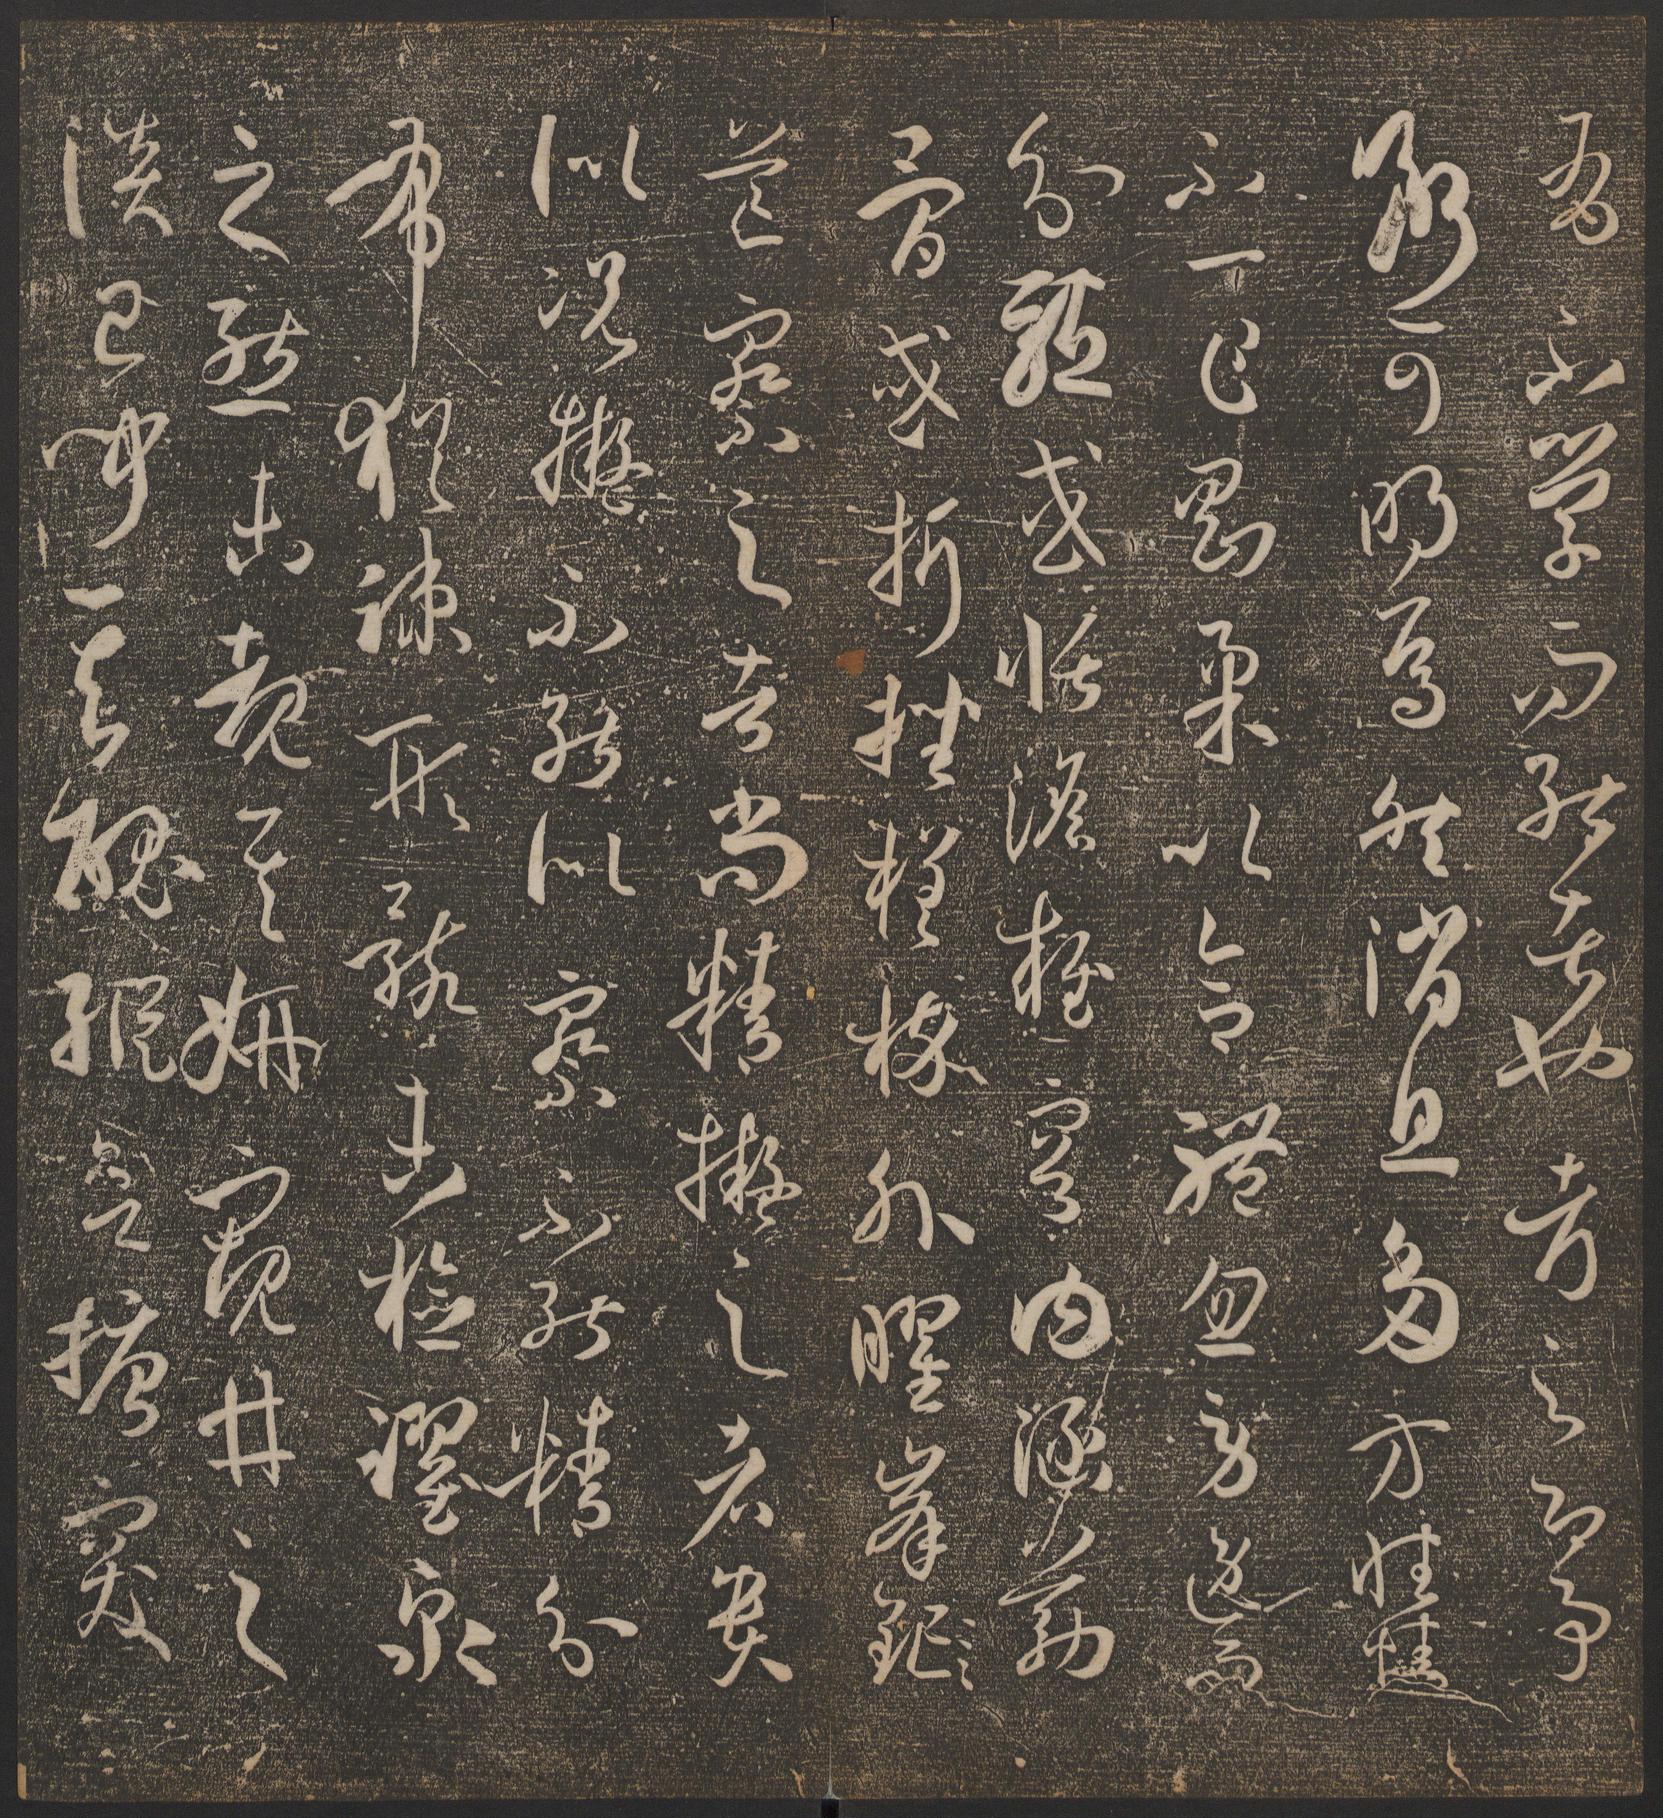 有不學而能者也考之即事
斷可明焉然消息多方性情
不一乍剛柔以合體忽勞逸而
分驅或恬澹雍容內涵筋
骨或折挫槎枿外曜峯鋩
芒察之者尚精擬之者貴
似況擬不能似察不能精分
布猶疎形骸未檢躍泉
之態未覩其妍窺井之
談已聞其醜縱欲搪突